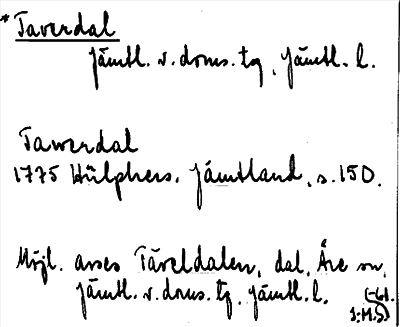 *Taverdal
Jämtl. v. doms. tg, Jämtl. l.
Tawerdal
1775 Hülphers. Jämtland, s. 150.
Möjl. avses Täveldalen, dal, Åre sn,
Jämtl. v. doms. tg, Jämtl. l.
(-61.